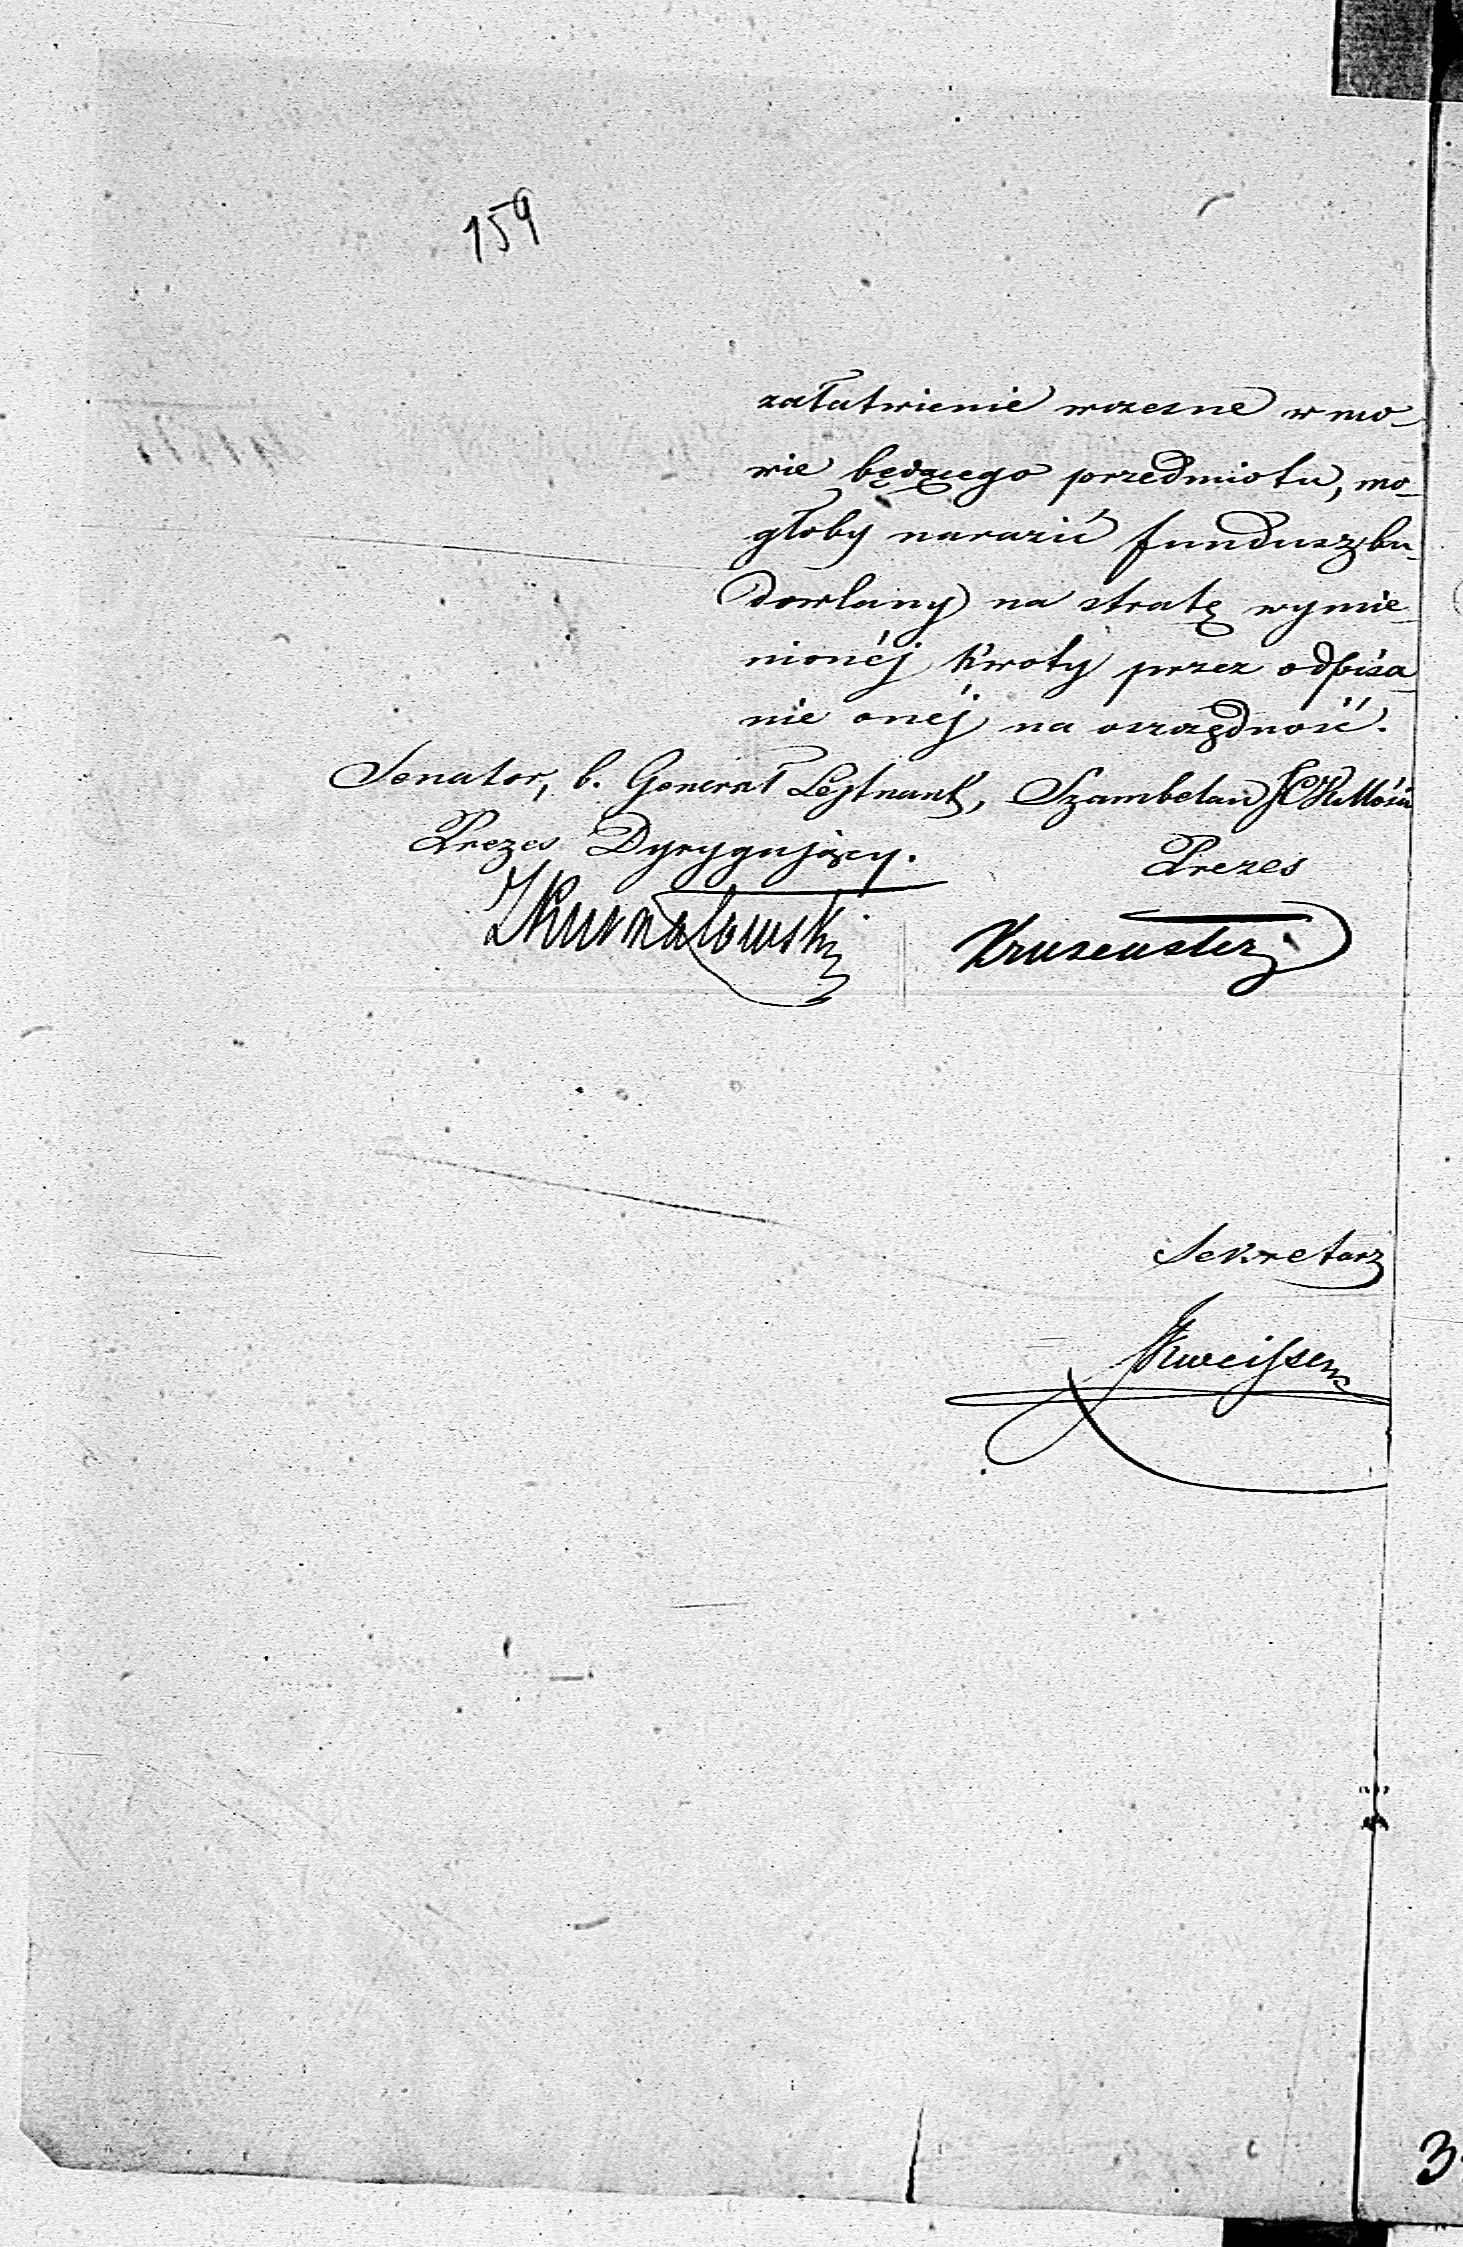 159
załatwienie wczesne w mo-
wie będącego przedmiotu, mo-
głoby narazić fundusz bu-
dowlany na stratę wymie-
nionéj kwoty przez odpisa-
nie onéj na oszczędność.
Senator, b. Generał Lejtnant, Szambelan JCKMości
Prezes Dyrygujący. Prezes
Kurnatowski Kruzenstern
Sekretarz
3